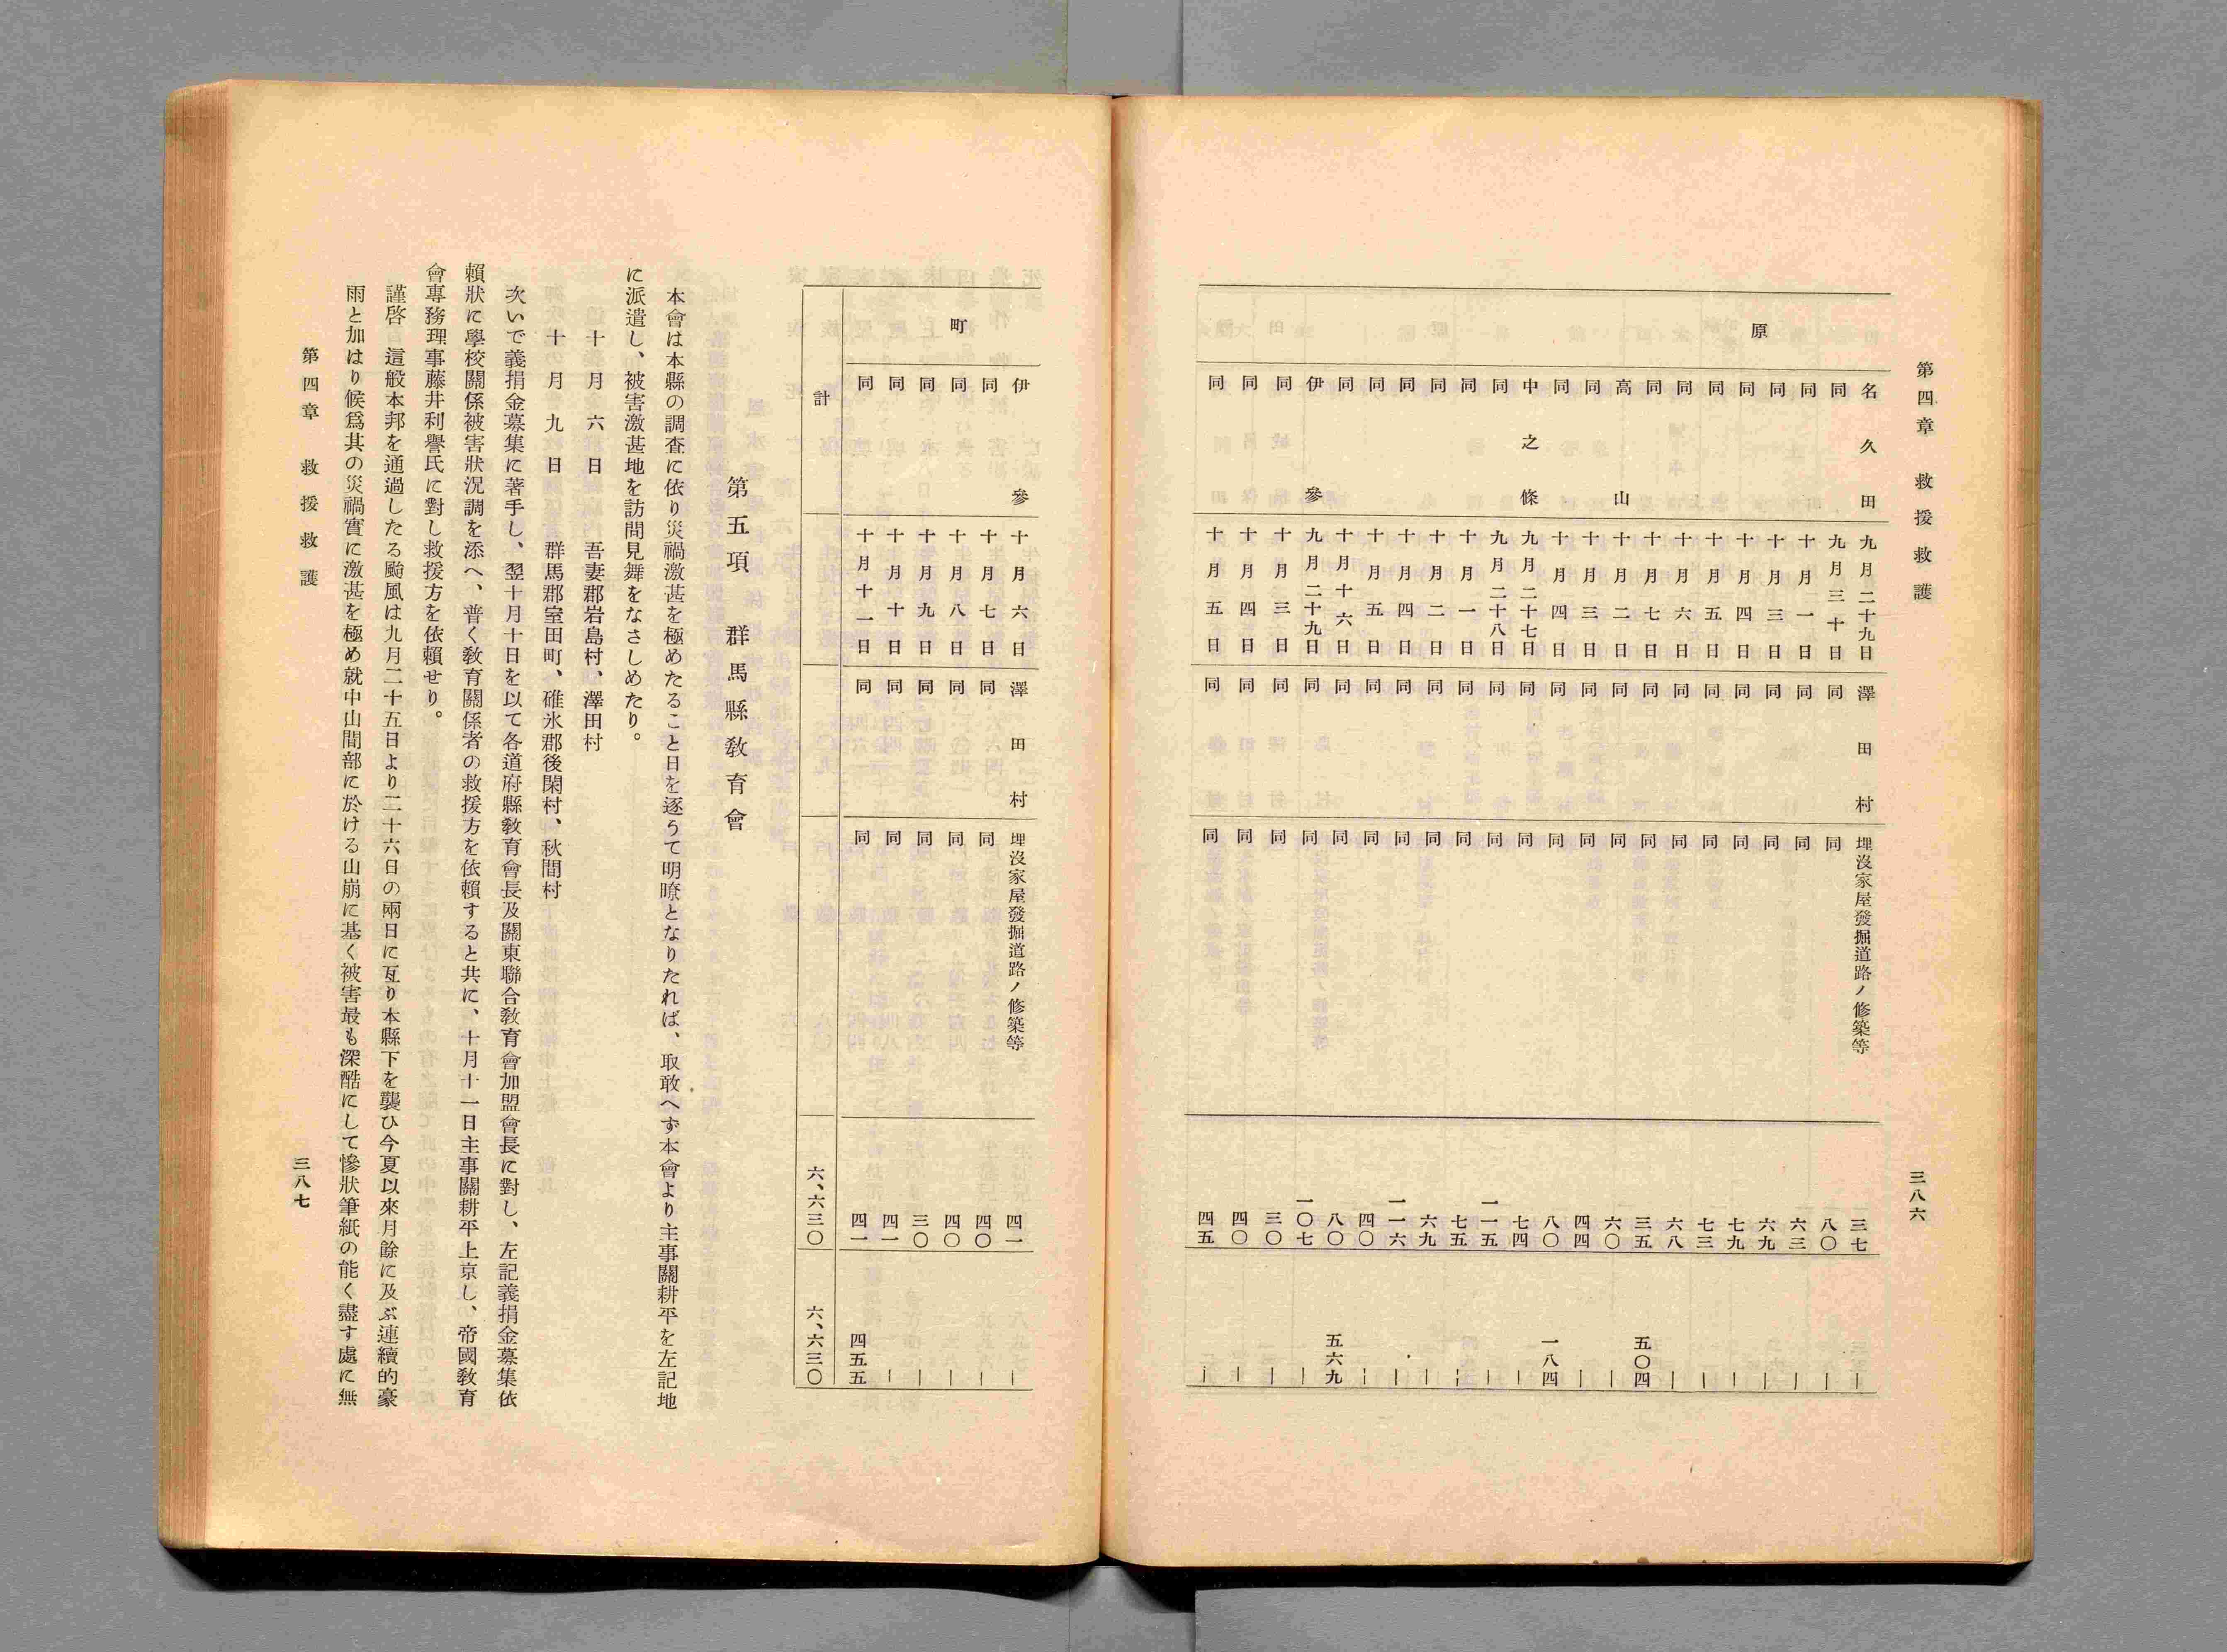 第四章 救援救護 三八六
原
名久田 九月二十九日 澤田村 埋沒家屋發掘道路ノ修築等 三七 ―
同 九月三十日 同 同 八〇 ―
同 十月一日 同 同 六三 ―
同 十月三日 同 同 六九 ―
同 十月四日 同 同 七九 ―
同 十月五日 同 同 七三 ―
同 十月六日 同 同 六八 ―
同 十月七日 同 同 三五 五〇四
高山 十月二日 同 同 六〇 ―
同 十月三日 同 同 四四 ―
同 十月四日 同 同 八〇 一八四
中之條 九月二十七日 同 同 七四 ―
同 九月二十八日 同 同 一一五 ―
同 十月一日 同 同 七五 ―
同 十月二日 同 同 六九 ―
同 十月四日 同 同 一一六 ―
同 十月五日 同 同 四〇 ―
同 十月十六日 同 同 八〇 五六九
伊參 九月二十九日 同 同 一〇七 ―
同 十月三日 同 同 三〇 ―
同 十月四日 同 同 四〇 ―
同 十月五日 同 同 四五 ―
町
伊參 十月六日 澤田村 埋沒家屋發掘道路ノ修築等 四一 ―
同 十月七日 同 同 四〇 ―
同 十月八日 同 同 四〇 ―
同 十月九日 同 同 三〇 ―
同 十月十日 同 同 四一 ―
同 十月十一日 同 同 四一 四五五
計 六、六三〇 六、六三〇
第五項 群馬縣敎育會
本會は本縣の調査に依り災禍激甚を極めたること日を逐うて明瞭となりたれば、取敢へず本會より主事關耕平を左記地
に派遣し、被害激甚地を訪問見舞をなさしめたり。
十月六日 吾妻郡岩島村、澤田村
十月九日 群馬郡室田町、碓氷郡後閑村、秋間村
次いで義捐金募集に著手し、翌十月十日を以て各道府縣敎育會長及關東聯合敎育會加盟會長に對し、左記義捐金募集依
賴狀に學校關係被害狀況調を添へ、普く敎育關係者の救援方を依賴すると共に、十月十一日主事關耕平上京し、帝國敎育
會專務理事藤井利譽氏に對し救援方を依賴せり。
謹啓 這般本邦を通過したる颱風は九月二十五日より二十六日の兩日に亙り本縣下を襲ひ今夏以來月餘に及ぶ連續的豪
雨と加はり候爲其の災禍實に激甚を極め就中山間部に於ける山崩に基く被害最も深酷にして慘狀筆紙の能く盡す處に無
第四章 救援救護 三八七